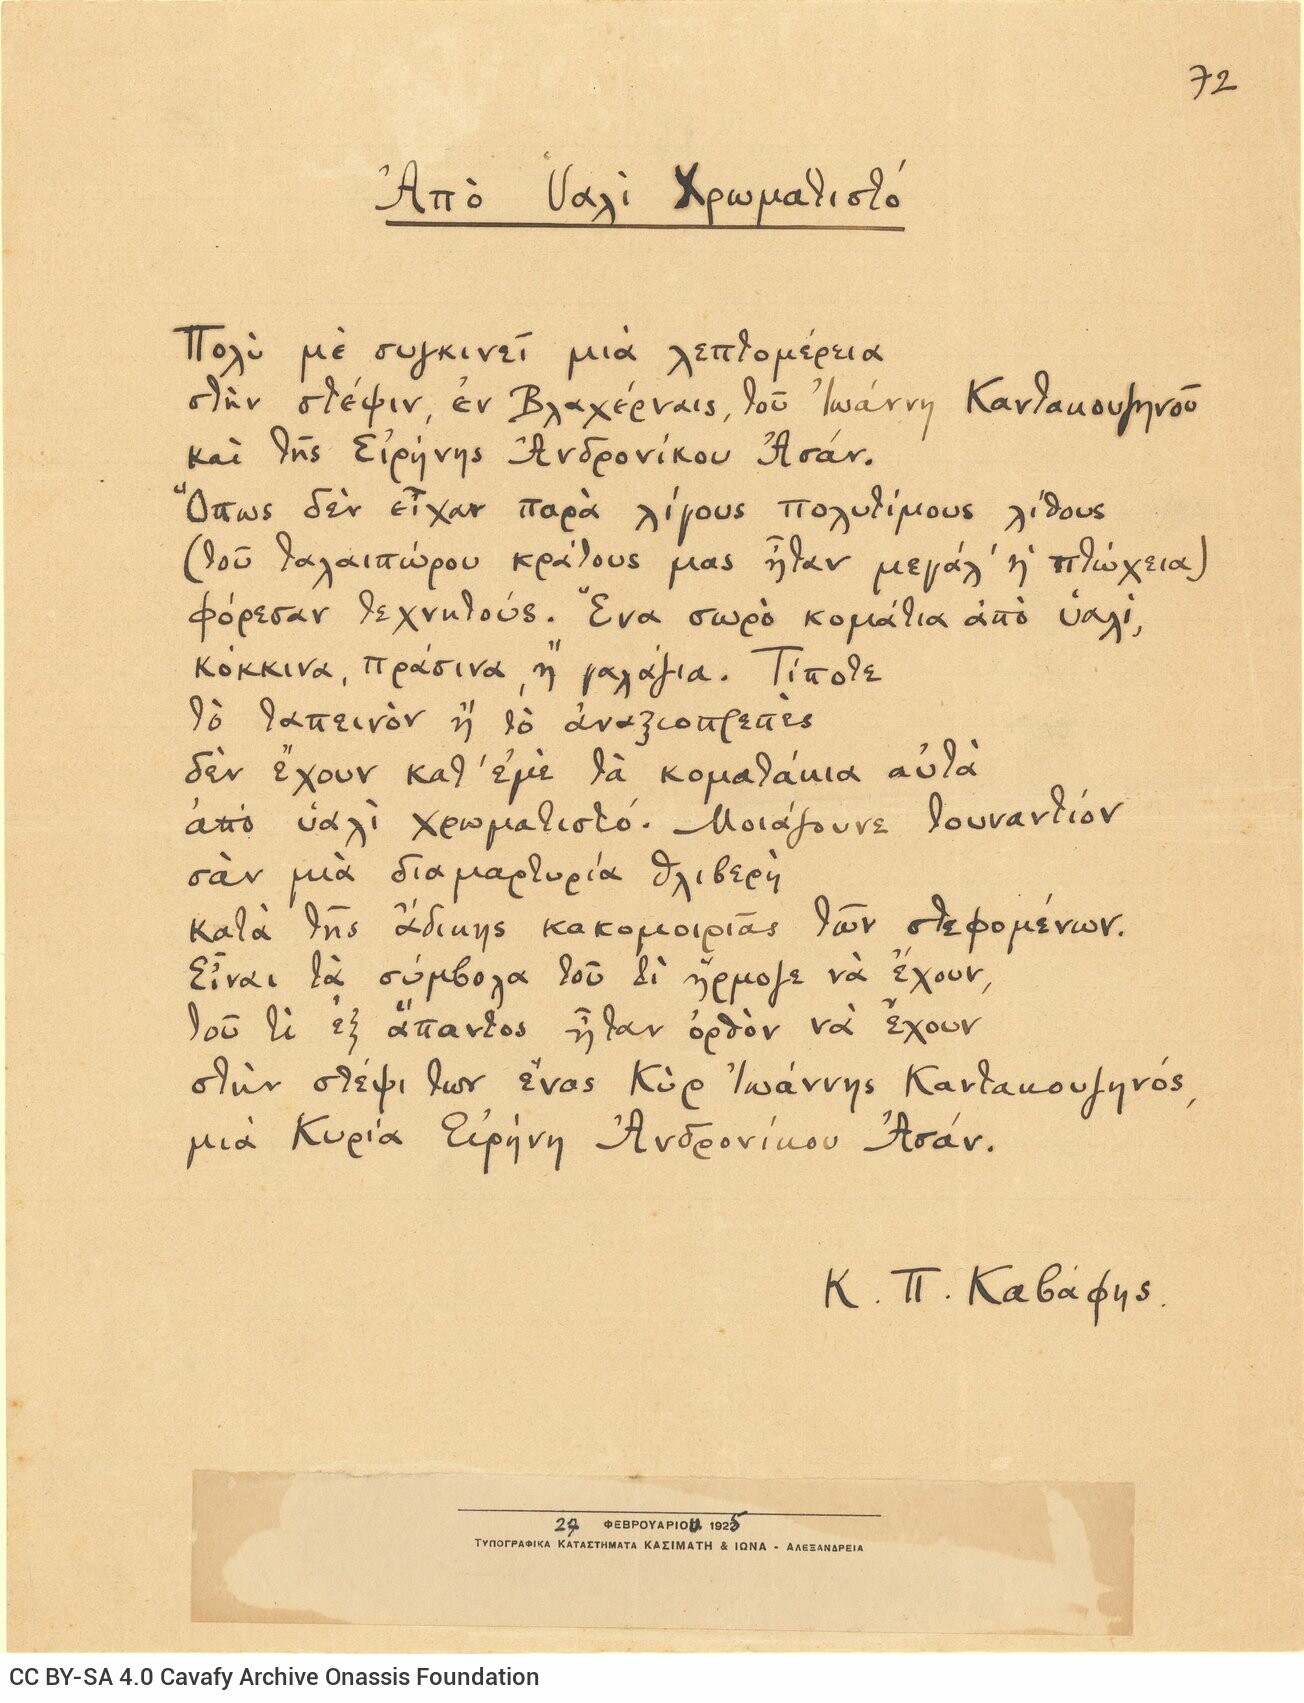 72
Ἀπὸ Ὑαλὶ Χρωματιστό
Πολὺ μὲ συγκινεῖ μιὰ λεπτομέρεια
στὴν στέψιν, ἐν Βλαχέρναις, τοῦ Ἰωάννη Καντακουζηνοῦ
καὶ τῆς Εἰρήνης Ἀνδρονίκου Ἀσάν.
Ὅπως δὲν εἶχαν παρὰ λίγους πολυτίμους λίθους
(τοῦ ταλαιπώρου κράτους μας ἦταν μεγάλ' ἡ πτώχεια)
φόρεσαν τεχνητούς. Ἕνα σωρὸ κομάτια ἀπὸ ὑαλί,
κόκκινα, πράσινα, ἢ γαλάζια. Τίποτε
τὸ ταπεινὸν ἢ τὸ ἀναξιοπρεπὲς
δὲν ἔχουν κατ' ἐμὲ τὰ κοματάκια αὐτὰ
ἀπὸ ὑαλὶ χρωματιστό. Μοιάζουνε τουναντίον
σὰν μιὰ διαμαρτυρία θλιβερὴ
κατὰ τῆς ἄδικης κακομοιριᾶς τῶν στεφομένων.
Εἶναι τὰ σύμβολα τοῦ τί ἥρμοζε νὰ ἔχουν,
τοῦ τί ἐξ ἅπαντος ἦταν ὀρθὸν νὰ ἔχουν
στὴν στέψι των ἕνας Κὺρ Ἰωάννης Καντακουζηνός,
μιὰ Κυρία Εἰρήνη Ἀνδρονίκου Ἀσάν.
Κ. Π. Καβάφης.
ΦΕΒΡΟΥΑΡΙΟΥ 1925
ΤΥΠΟΓΡΑΦΙΚΑ ΚΑΤΑΣΤΗΜΑΤΑ ΚΑΣΙΜΑΤΗ & ΙΩΝΑ - ΑΛΕΞΑΝΔΡΕΙΑ
CC BY-SA 4.0 Cavafy Archive Onassis Foundation